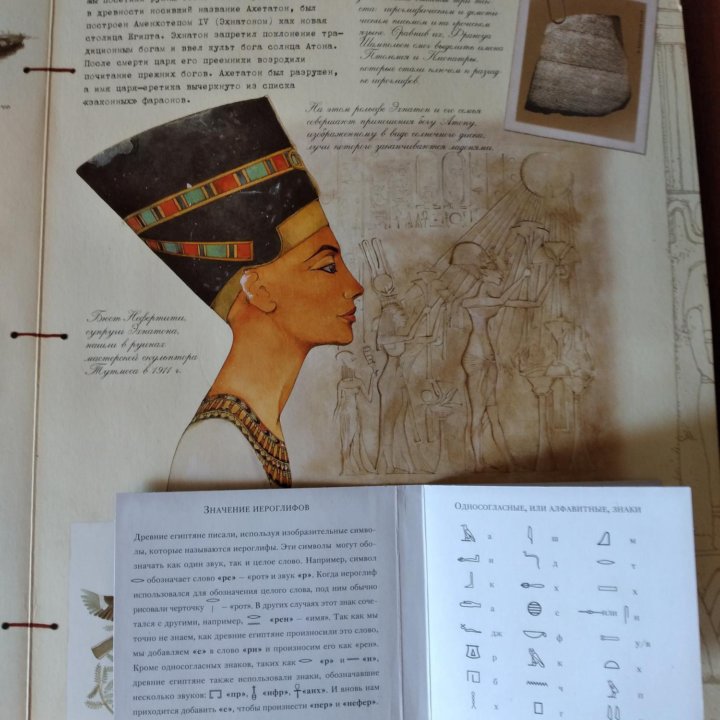 в древности носивший название Ахетатон, был
построен Аменхотепом IV (Эхнатоном) как новая
столица Египта. Эхнатон запретил поклонение тра-
диционным богам и ввел культ бога солнца Атона.
После смерти царя его преемники возродили
почитание прежних богов. Ахетатон был разрушен,
а имя царя-еретика вычеркнуто из списка
«законных» фараонов.
ста: иероглифическом и демоти-
ческом письмом и на греческом
языке. Сравнив их, Франсуа
Шампольон смог выделить имена
Птолемея и Клеопатры,
которые стали ключом к разгад-
ке иероглифов.
На этом рельефе Эхнатон и его семья
совершают приношения богу Атону,
изображенному в виде солнечного диска,
лучи которого заканчиваются ладонями.
Бюст Нефертити,
супруги Эхнатона,
нашли в руинах
мастерской скульптора
Тутмеса в 1911 г.
Значение иероглифов
Древние египтяне писали, используя изобразительные симво-
лы, которые называются иероглифы. Эти символы могут обо-
значать как один звук, так и целое слово. Например, символ
обозначает слово «ре» – «рот» и звук «р». Когда иероглиф
использовался для обозначения целого слова, под ним обычно
рисовали черточку – «рот». В других случаях этот знак соче-
тался с другими, например, «рен» – «имя». Так как мы
точно не знаем, как древние египтяне произносили это слово,
мы добавляем «е» в слово «рн» и произносим его как «рен».
Кроме односогласных знаков, таких как «р» и «н»,
древние египтяне также использовали знаки, обозначавшие
несколько звуков: «пр», «нфр», «анх». И вновь нам
приходится добавить «е», чтобы произнести «пер» и «нефер».
Односогласные, или алфавитные, знаки
а ш м
и д т
к х
а с или н
дж ф у/в
р к х
б ч п
г